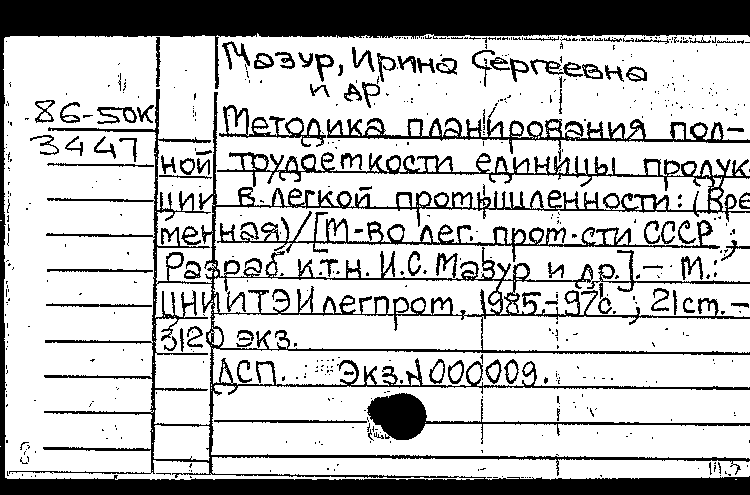 Мазур, Ирина Сергеевна
и др.
86-50к
3447
Методика планирования пол-
ной трудоемкости единицы продук-
ции в легкой промышленности: (Вре-
менная)/[М-во лег. пром-сти СССР ;
Разраб. к.т.н. И.С. Мазур и др.].— М.:
ЦНИИТЭИлегпром, 1985.-97с. ; 21см.—
3120 экз.
ДСП. Экз.N000009.
8